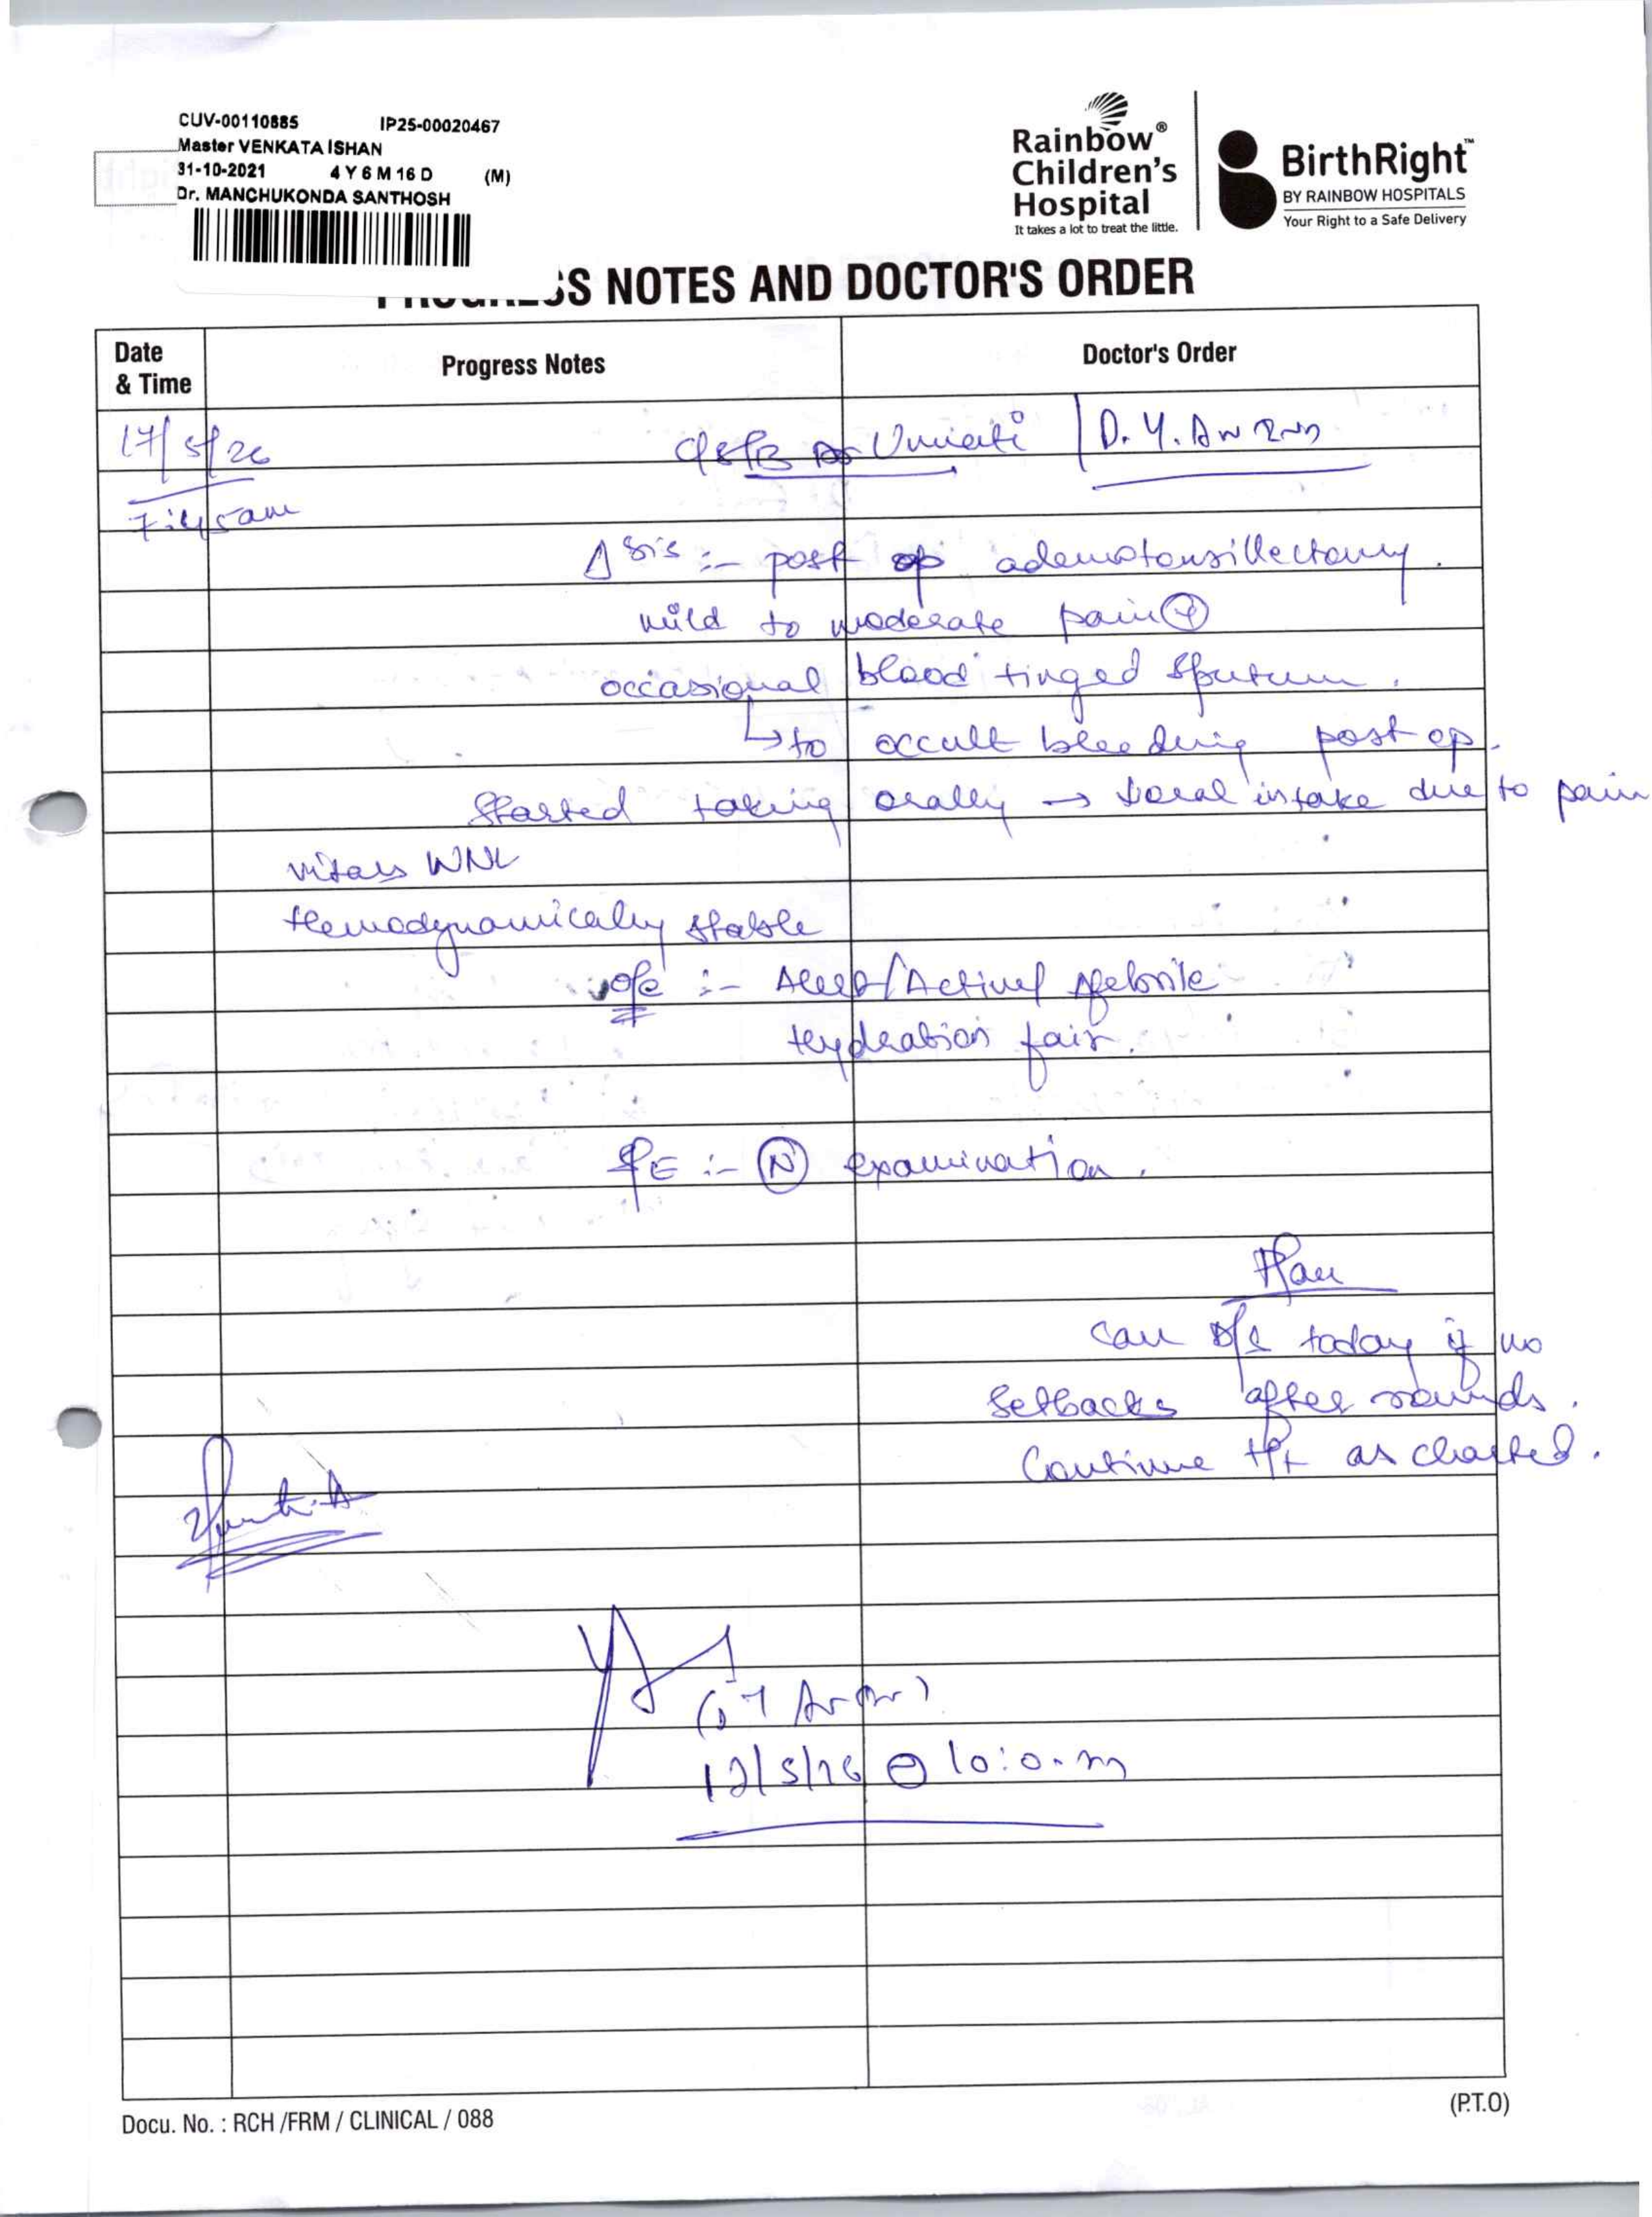 CUV-00110885 IP25-00020467
Master VENKATA ISHAN
31-10-2021 4 Y 6 M 16 D (M)
Dr. MANCHUKONDA SANTHOSH
Rainbow®
Children's
Hospital
It takes a lot to treat the little.
BirthRight™
BY RAINBOW HOSPITALS
Your Right to a Safe Delivery
SS NOTES AND DOCTOR'S ORDER
Date & Time
Progress Notes
Doctor's Order
17/5/26
7:45am
Δsis :- post op adenotonsillectomy.
mild to moderate pain ⊕
occasional blood tinged sputum.
↳ to occult bleeding post op.
Started taking orally → intake due to pain
vitals WNL
Hemodynamically stable
o/e :- Alert/Active/ Afebrile
Hydration fair.
S/E :- Ⓝ examination.
Plan
can D/s today if no
setbacks after rounds.
Continue as charted.
@ 10:0
Docu. No. : RCH /FRM / CLINICAL / 088
(P.T.O)